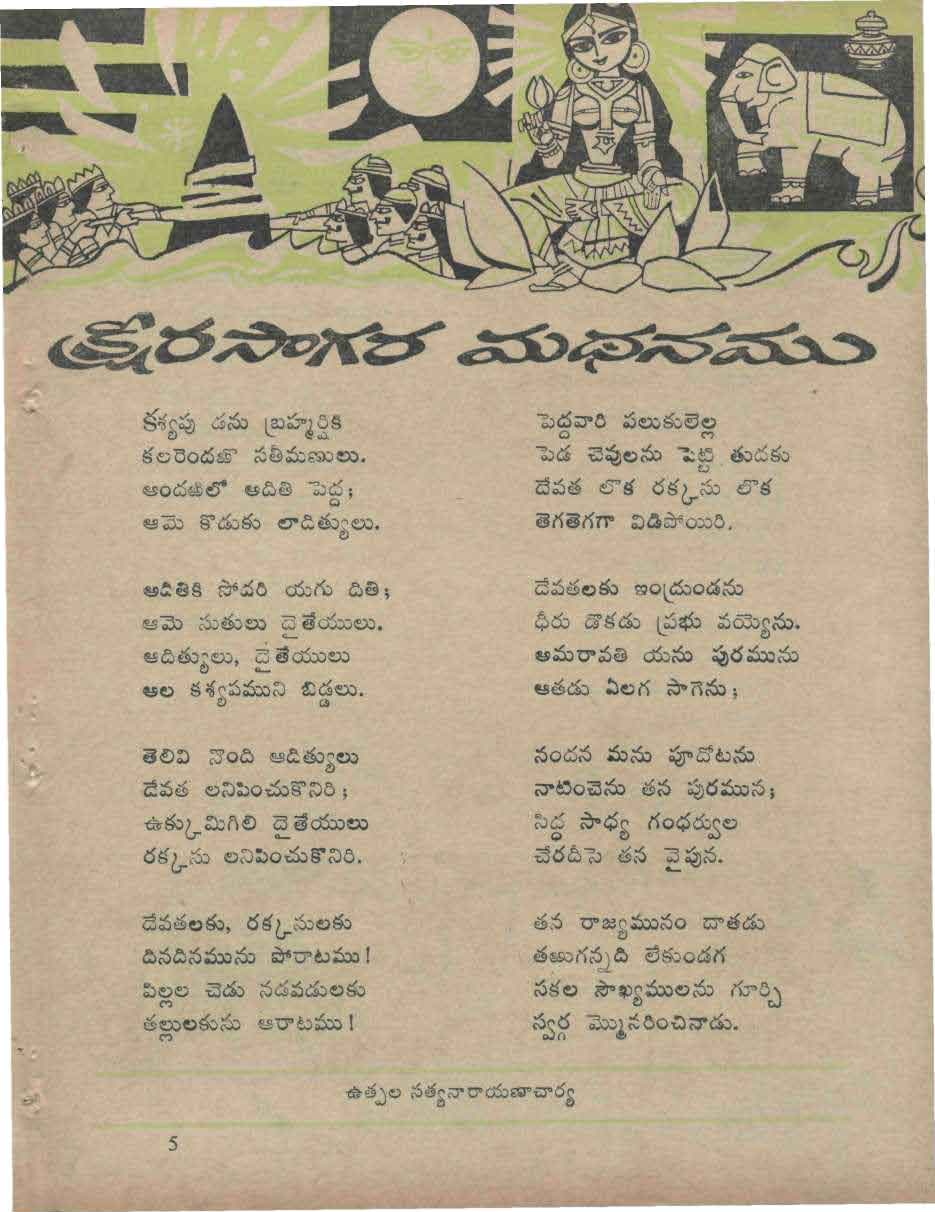 క్షీరసాగర మథనము
కశ్యపు డను బ్రహ్మర్షికి
కలరెందఱొ సతీమణులు.
అందఱిలో అదితి పెద్ద;
ఆమె కొడుకు లాదిత్యులు.
అదితికి సోదరి యగు దితి;
ఆమె సుతులు దైతేయులు.
ఆదిత్యులు, దైతేయులు
అల కశ్యపముని బిడ్డలు.
తెలివి నొంది ఆదిత్యులు
దేవత లనిపించుకొనిరి;
ఉక్కుమిగిలి దైతేయులు
రక్కసు లనిపించుకొనిరి.
దేవతలకు, రక్కసులకు
దినదినమును పోరాటము!
పిల్లల చెడు నడవడులకు
తల్లులకును ఆరాటము!
పెద్దవారి పలుకులెల్ల
పెడ చెవులను పెట్టి తుదకు
దేవత లొక రక్కసు లొక
తెగతెగగా విడిపోయిరి.
దేవతలకు ఇంద్రుండను
ధీరు డొకడు ప్రభు వయ్యెను.
అమరావతి యను పురమును
ఆతడు ఏలగ సాగెను;
నందన మను పూదోటను
నాటించెను తన పురమున;
సిద్ధ సాధ్య గంధర్వుల
చేరదీసె తన వైపున.
తన రాజ్యమునం దాతడు
తఱుగన్నది లేకుండగ
సకల సౌఖ్యములను గూర్చి
స్వర్గ మ్మొనరించినాడు.
ఉత్పల సత్యనారాయణాచార్య
5